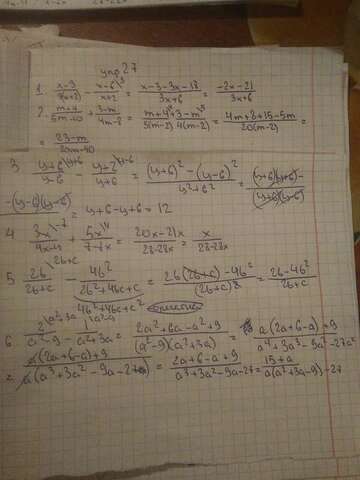 упр 27
1. x-3/3(x+2) - x-6\3/x+2 = x-3-3x-18/3x+6 = -2x-21/3x+6
2. m+4/5m-10 + 3-m/4m-8 = m+4\4+3-m\5/5(m-2)·4(m-2) = 4m+8+15-5m/20(m-2) =
= 23-m/20m-40
3 y+6\y+6/y-6 y+2\y-6/y+6 = (y+6)²-(y-6)²/y²+6² = (y+6)(y+6)-/(y+6)(y-6)
-(y-6)(y-6) = y+6-y+6 = 12
4 3x\-7/4x-4 + 5x\4/7-7x = 20x-21x/28-28x = x/28-28x
5 2b\2b+c/2b+c - 4b²/2b²+4b+c = 2b(2b+c)-4b²/(2b+c)² = 2b-4b²/2b+c
4b²+4b+c²
6 2\a²+3a/a²-9 - 1\a²-9/a²+3a = 2a²+6a-a²+9/(a²-9)(a²+3a) = a(2a+6-a)+9/a⁴+3a³-9a²-27a²
= a(2a+6-a)+9/a(a³+3a²-9a-27) = 2a+6-a+9/a³+3a²-9a-27 = 15+a/a(a²+3a-9)-27